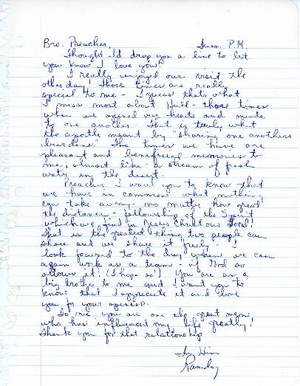 Bro. Preacher, Sun. P.M.
Thought I'd drop you a line to let
you know I love you!
I really enjoyed our visit the
other day! Those times are really
special to me - I guess that's what
I miss most about Hull - those times
when we opened our hearts and minds
to one another. That is truly, what
the apostle meant by "sharing one anothers
burdens". The times we have are
pleasant and beneficial memories to
me, almost like a stream of fresh
water in the desert.
Preacher, I want you to know that
we have in common what nothing
can take away - no matter how great
the distance - fellowship of the Spirit
which is found in Jesus Christ our Lord!
that is the greatest thing two people can
share and we share it freely! I
look forward to the day when we can
again work as a team - if God so
allows it! (I hope so!) You are as a
big brother to me and I want you to
know that I appreciate it and love
you for your
To me you are one of the men
who has influenced my life greatly!
Thank you for that relationship
In Him
Randy